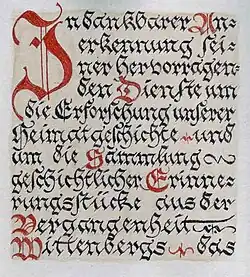 In dankbarer An-
erkennung sei-
ner hervorragen-
den Dienste um
die Erforschung unserer
Heimatgeschichte und
um die Sammlung
geschichtlicher Erinne-
rungsstücke aus der
Vergangenheit
Wittenbergs das